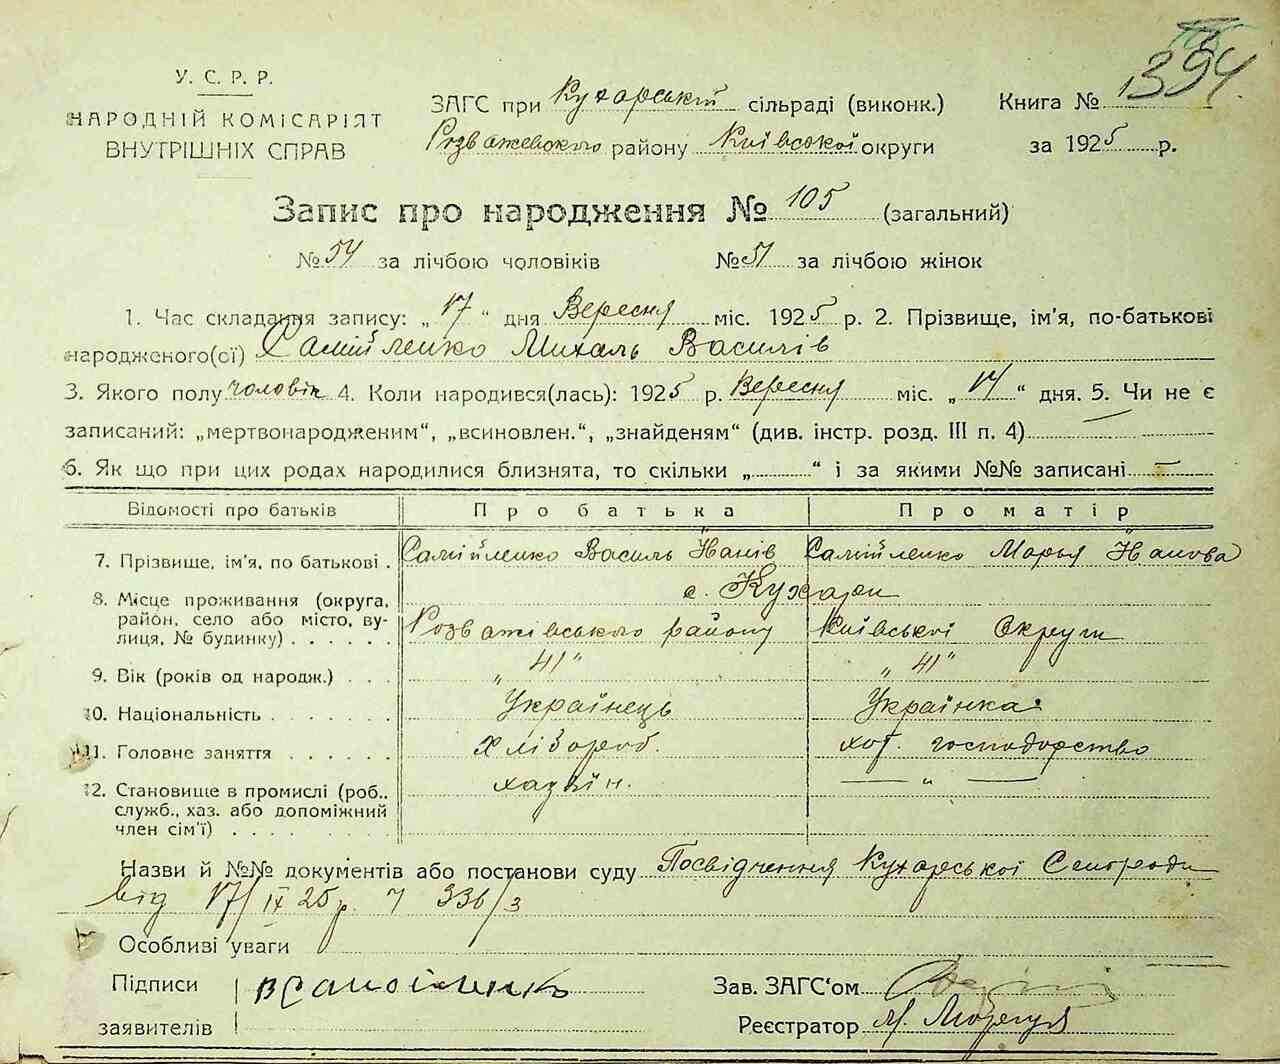 394
У. С. Р. Р.
НАРОДНІЙ КОМІСАРІЯТ
ВНУТРІШНІХ СПРАВ
ЗАГС при Кухарській сільраді (виконк.)
Розважевского району Київської округи
Книга №
за 1925 р.
Запис про народження № 105 (загальний)
№ 54 за лічбою чоловіків № 51 за лічбою жінок
1. Час складання запису: „17“ дня Вересня міс. 1925 р. 2. Прізвище, ім'я, по-батькові
народженого(ої) Самійленко Михаль Василів
3. Якого полу чоловік 4. Коли народився(лась): 1925 р. Вересня міс. „14“ дня. 5. Чи не є
записаний: „мертвонародженим“, „всиновлен.“, „знайденям“ (див. інстр. розд. III п. 4)
6. Як що при цих родах народилися близнята, то скільки „ “ і за якими №№ записані —
Відомості про батьків Про батька Про матір
7. Прізвище, ім'я, по батькові . Самійленко Василь Йванів Самійленко Марья Йванова
с. Кухари
8. Місце проживання (округа, район, село або місто, вулиця, № будинку) . . . . . . Розважівського району Київської Округи
9. Вік (років од народж.) . . . „41“ „41“
10. Національність . . . . . . . Українець Українка
11. Головне заняття . . . . . . Хлібороб. хат. господарство
12. Становище в промислі (роб., служб., хаз. або допоміжний член сім'ї) . . . . . . . хазяїн. — „ —
Назви й №№ документів або постанови суду Посвідчення Кухарської Сельради
від 17/IX 25 р. ч 336/3
Особливі уваги
Підписи В Самойленко Зав. ЗАГС'ом
заявителів Реєстратор М.